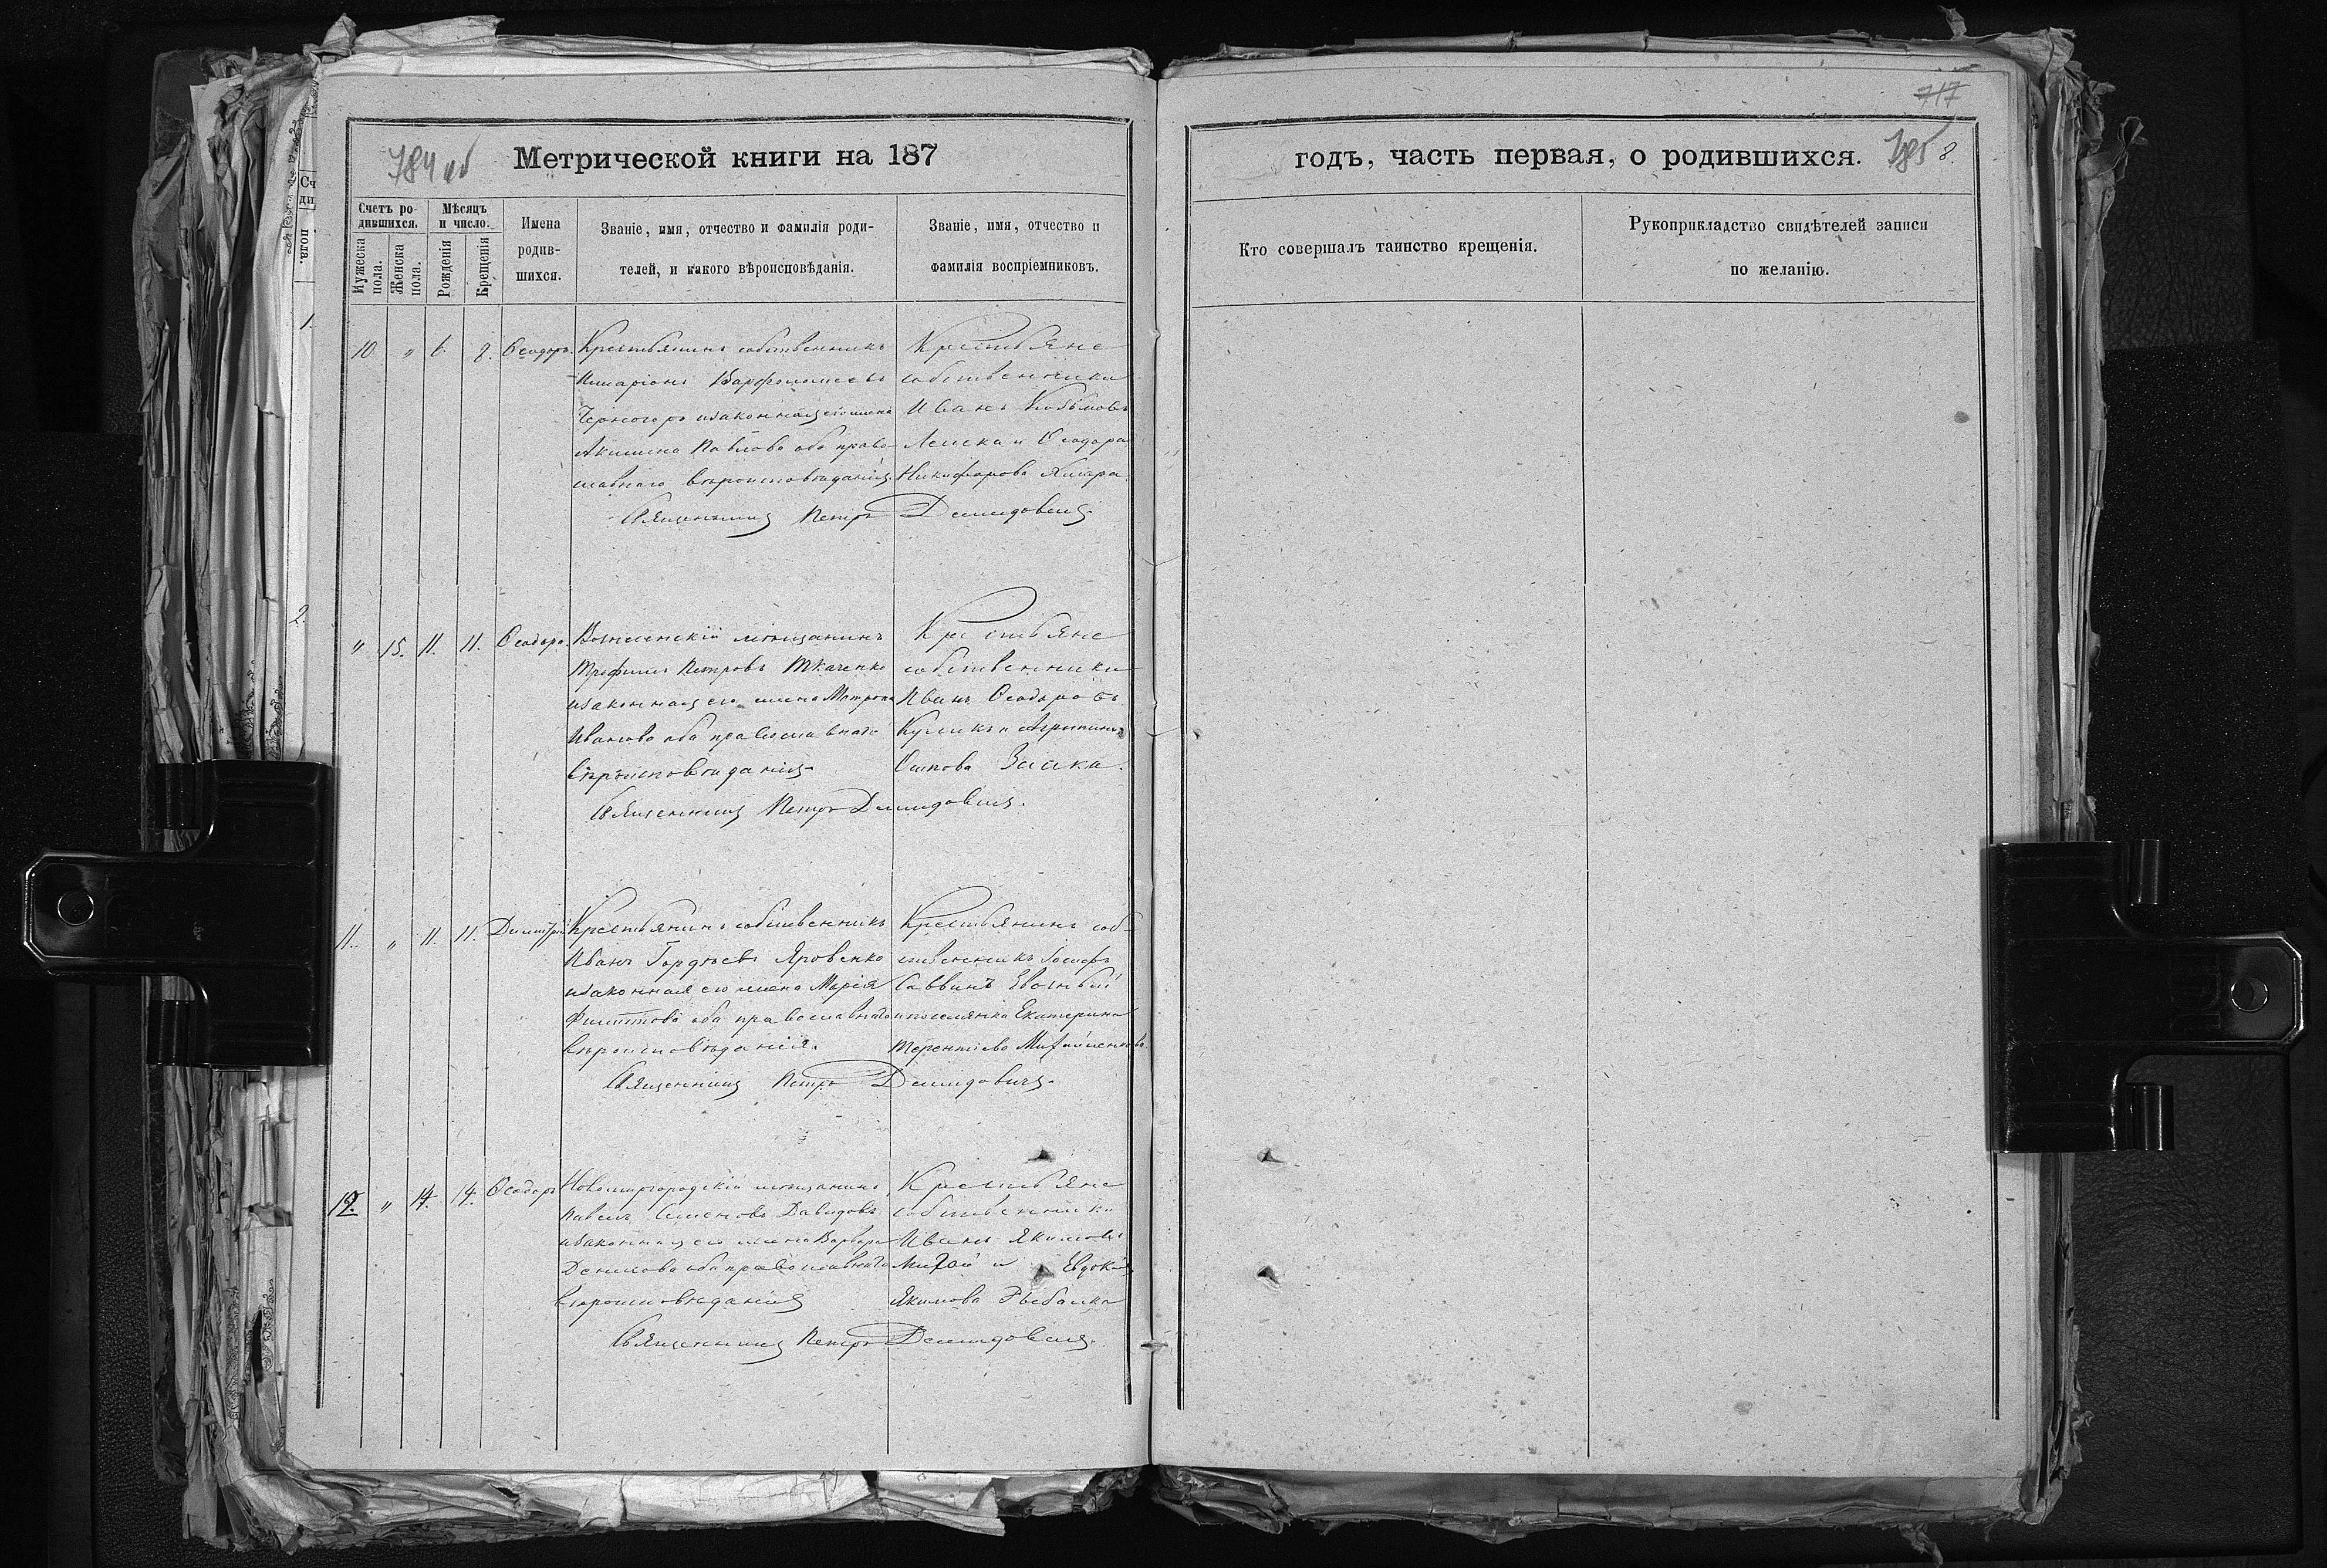 717
784 об
Метрической книги на 187
годъ, часть первая, о родившихся.
785
8.
Счетъ родившихся.
Мѣсяцъ и число.
Мужеска пола.
Женска пола.
Рожденія
Крещенія
Имена родившихся.
Званіе, имя, отчество и фамилія родителей, и какого вѣроисповѣданія.
Званіе, имя, отчество и фамилія воспріемниковъ.
Кто совершалъ таинство крещенія.
Рукоприкладство свидѣтелей записи по желанію.
10 „ 6. 8. Ѳеодоръ.
Крестьянинъ собственникъ
Иларіонъ Варфоломеевъ
Черногоръ и законная его жена
Акилина Павлова оба право-
славнаго вѣроисповѣданія
Крестьяне
собственники
Иванъ
и Ѳеодора
Никифорова
Священникъ Петръ Демидовичъ
„ 15. 11. 11. Ѳеодора.
Вознесенскій мѣщанинъ
Трофимъ Петровъ Ткаченко
и законная его жена Матрона
Иванова оба православнаго
вѣроисповѣданія
Крестьяне
собственники
Иванъ Ѳеодоровъ
Куликъ и Агрипина
Осипова Заика.
Священникъ Петръ Демидовичъ.
11. „ 11. 11. Димитрій
Крестьянинъ собственникъ
Иванъ Гордѣевъ Яровенко
и законная его жена Марія
Филипова оба православнаго
вѣроисповѣданія.
Крестьянинъ соб-
ственникъ Іосифъ
Саввинъ
и поселянка Екатерина
Терентіева
Священникъ Петръ Демидовичъ.
12. „ 14. 14. Ѳеодоръ
Новомиргородскій мѣщанинъ
Павелъ Семеновъ Давидовъ
и законная его жена Варвара
Денисова оба православнаго
вѣроисповѣданія
Крестьяне
собственники
Иванъ Якимовъ
и Евдокія
Якимова Рыбалка
Священникъ Петръ Демидовичъ.